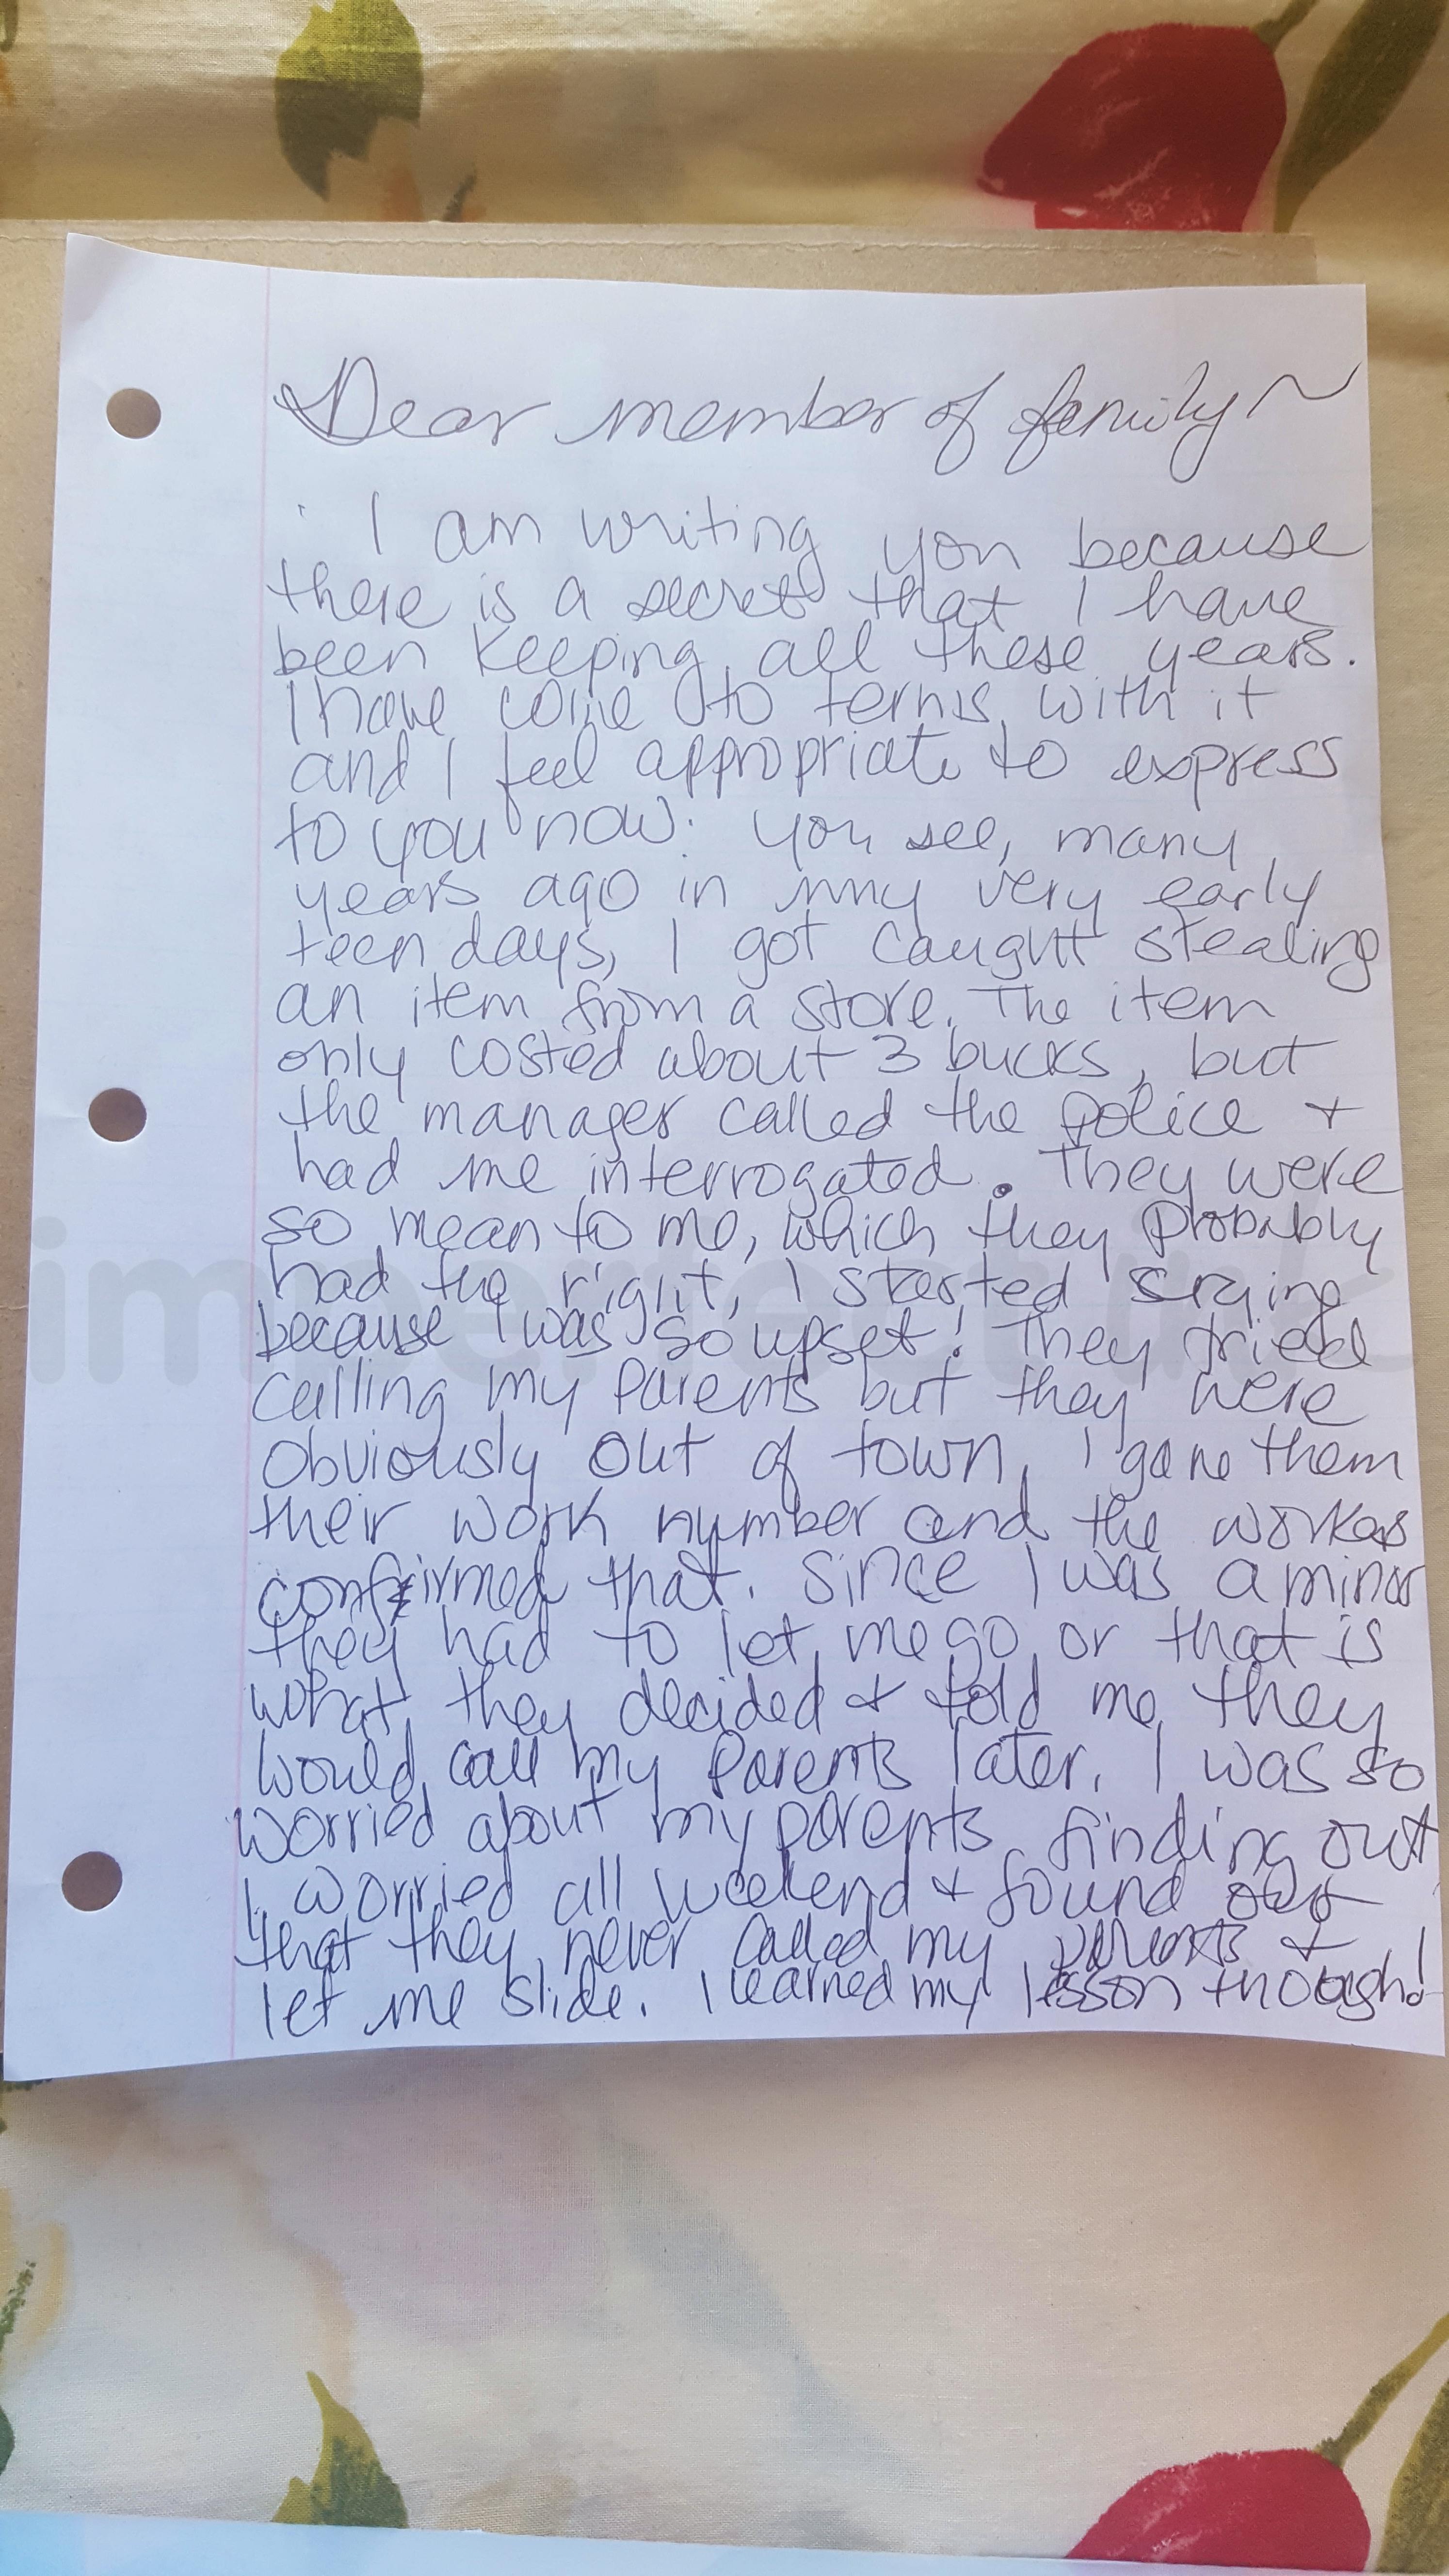 Dear member of family~
I am writing you because
there is a secret that I have
been keeping all these years.
I have come to terms with it
and I feel appropriate to express
to you now. You see, many
years ago in my very early
teen days, I got caught stealing
an item from a store. The item
only costed about 3 bucks, but
the manager called the police +
had me interrogated. They were
so mean to me, which they probably
had the right, I started crying
because I was so upset! They tried
calling my parents but they were
obviously out of town, I gave them
their work number and the workers
confirmed that. Since I was a minor
they had to let me go or that is
what they decided + told me they
would call my parents later. I was so
worried about my parents finding out
I worried all weekend + found out
that they never called my parents +
let me slide. I learned my lesson though!